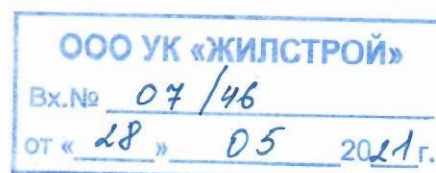 ООО УК «ЖИЛСТРОЙ»
Вх.№ 07/46
от « 28 » 05 2021 г.